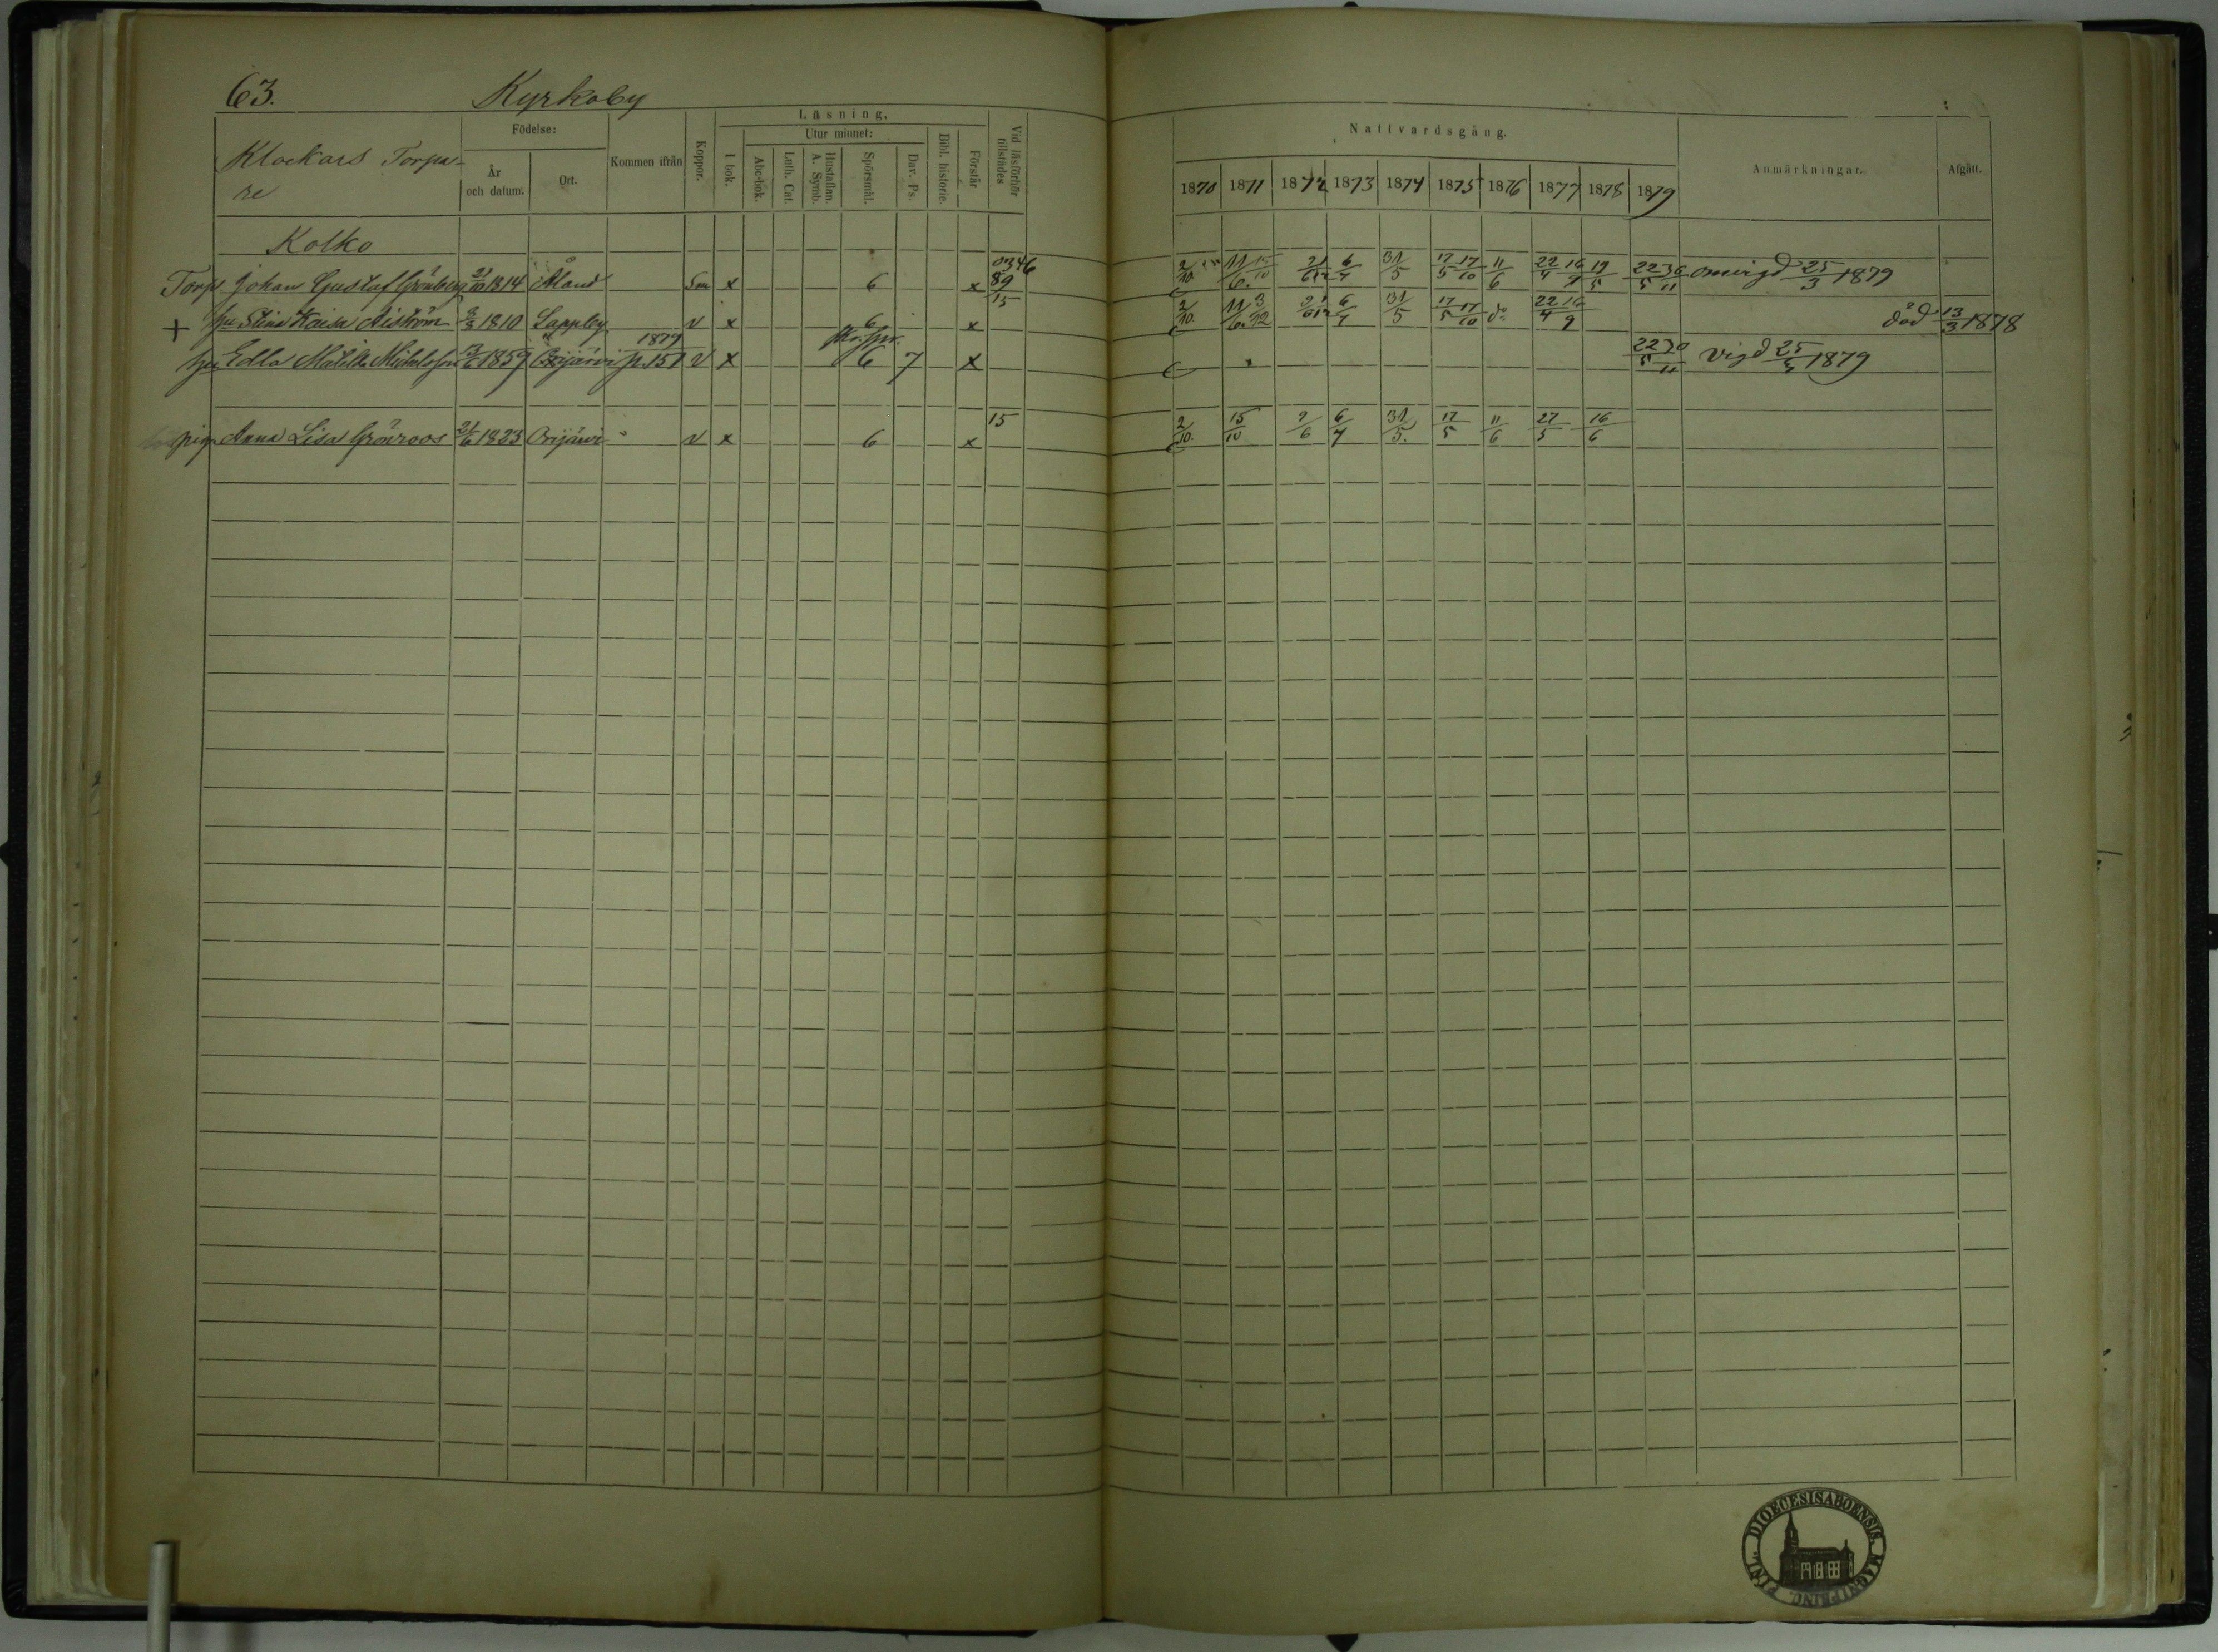 63. Kyrkoby
Klockars Torpa-
re
Födelse:
År och datum.
Ort.
Kommen ifrån
Koppor.
Läsning.
I bok.
Utur minnet:
Abc-bok.
Luth. Cat.
Hustaflan.
A. Symb.
Spörsmål.
Dav. Ps.
Bibl. historie.
Förstår
Vid läsförhör tillstädes
Nattvardsgång.
1870 1871 1872 1873 1874 1875 1876 1877 1878 1879
Anmärkningar.
Afgått.
Kolko
Torp. Johan Gustaf Grönberg 21/10 1814 Åland Sm x 6 x 89 2/10 11/6 15/10 6/7 31/5 17/5 17/10 11/6 22/4 16/9 19/5 22/5 30/11 omvigd 25/3 1879
+ hu Stina Kaisa Aiström 1810 Lappby v x 6 x 15 2/10 11/6 3/12 6/7 31/5 17/5 17/10 do 22/4 16/9 död 13/3 1878
hu Edla Matilda Michelsson 13/6 1859 Orijärvi 1879 p. 151 v x 6 7 x 22/5 30/11 vigd 25/3 1879
pig. Anna Lisa Grönroos 21/6 1823 Orijärvi v x 6 x 15 2/10 15/10 2/6 6/7 31/5. 17/5 11/6 27/5 16/6
FINL. DIOECESIS ABOENSIS. MAGNI PRINC.